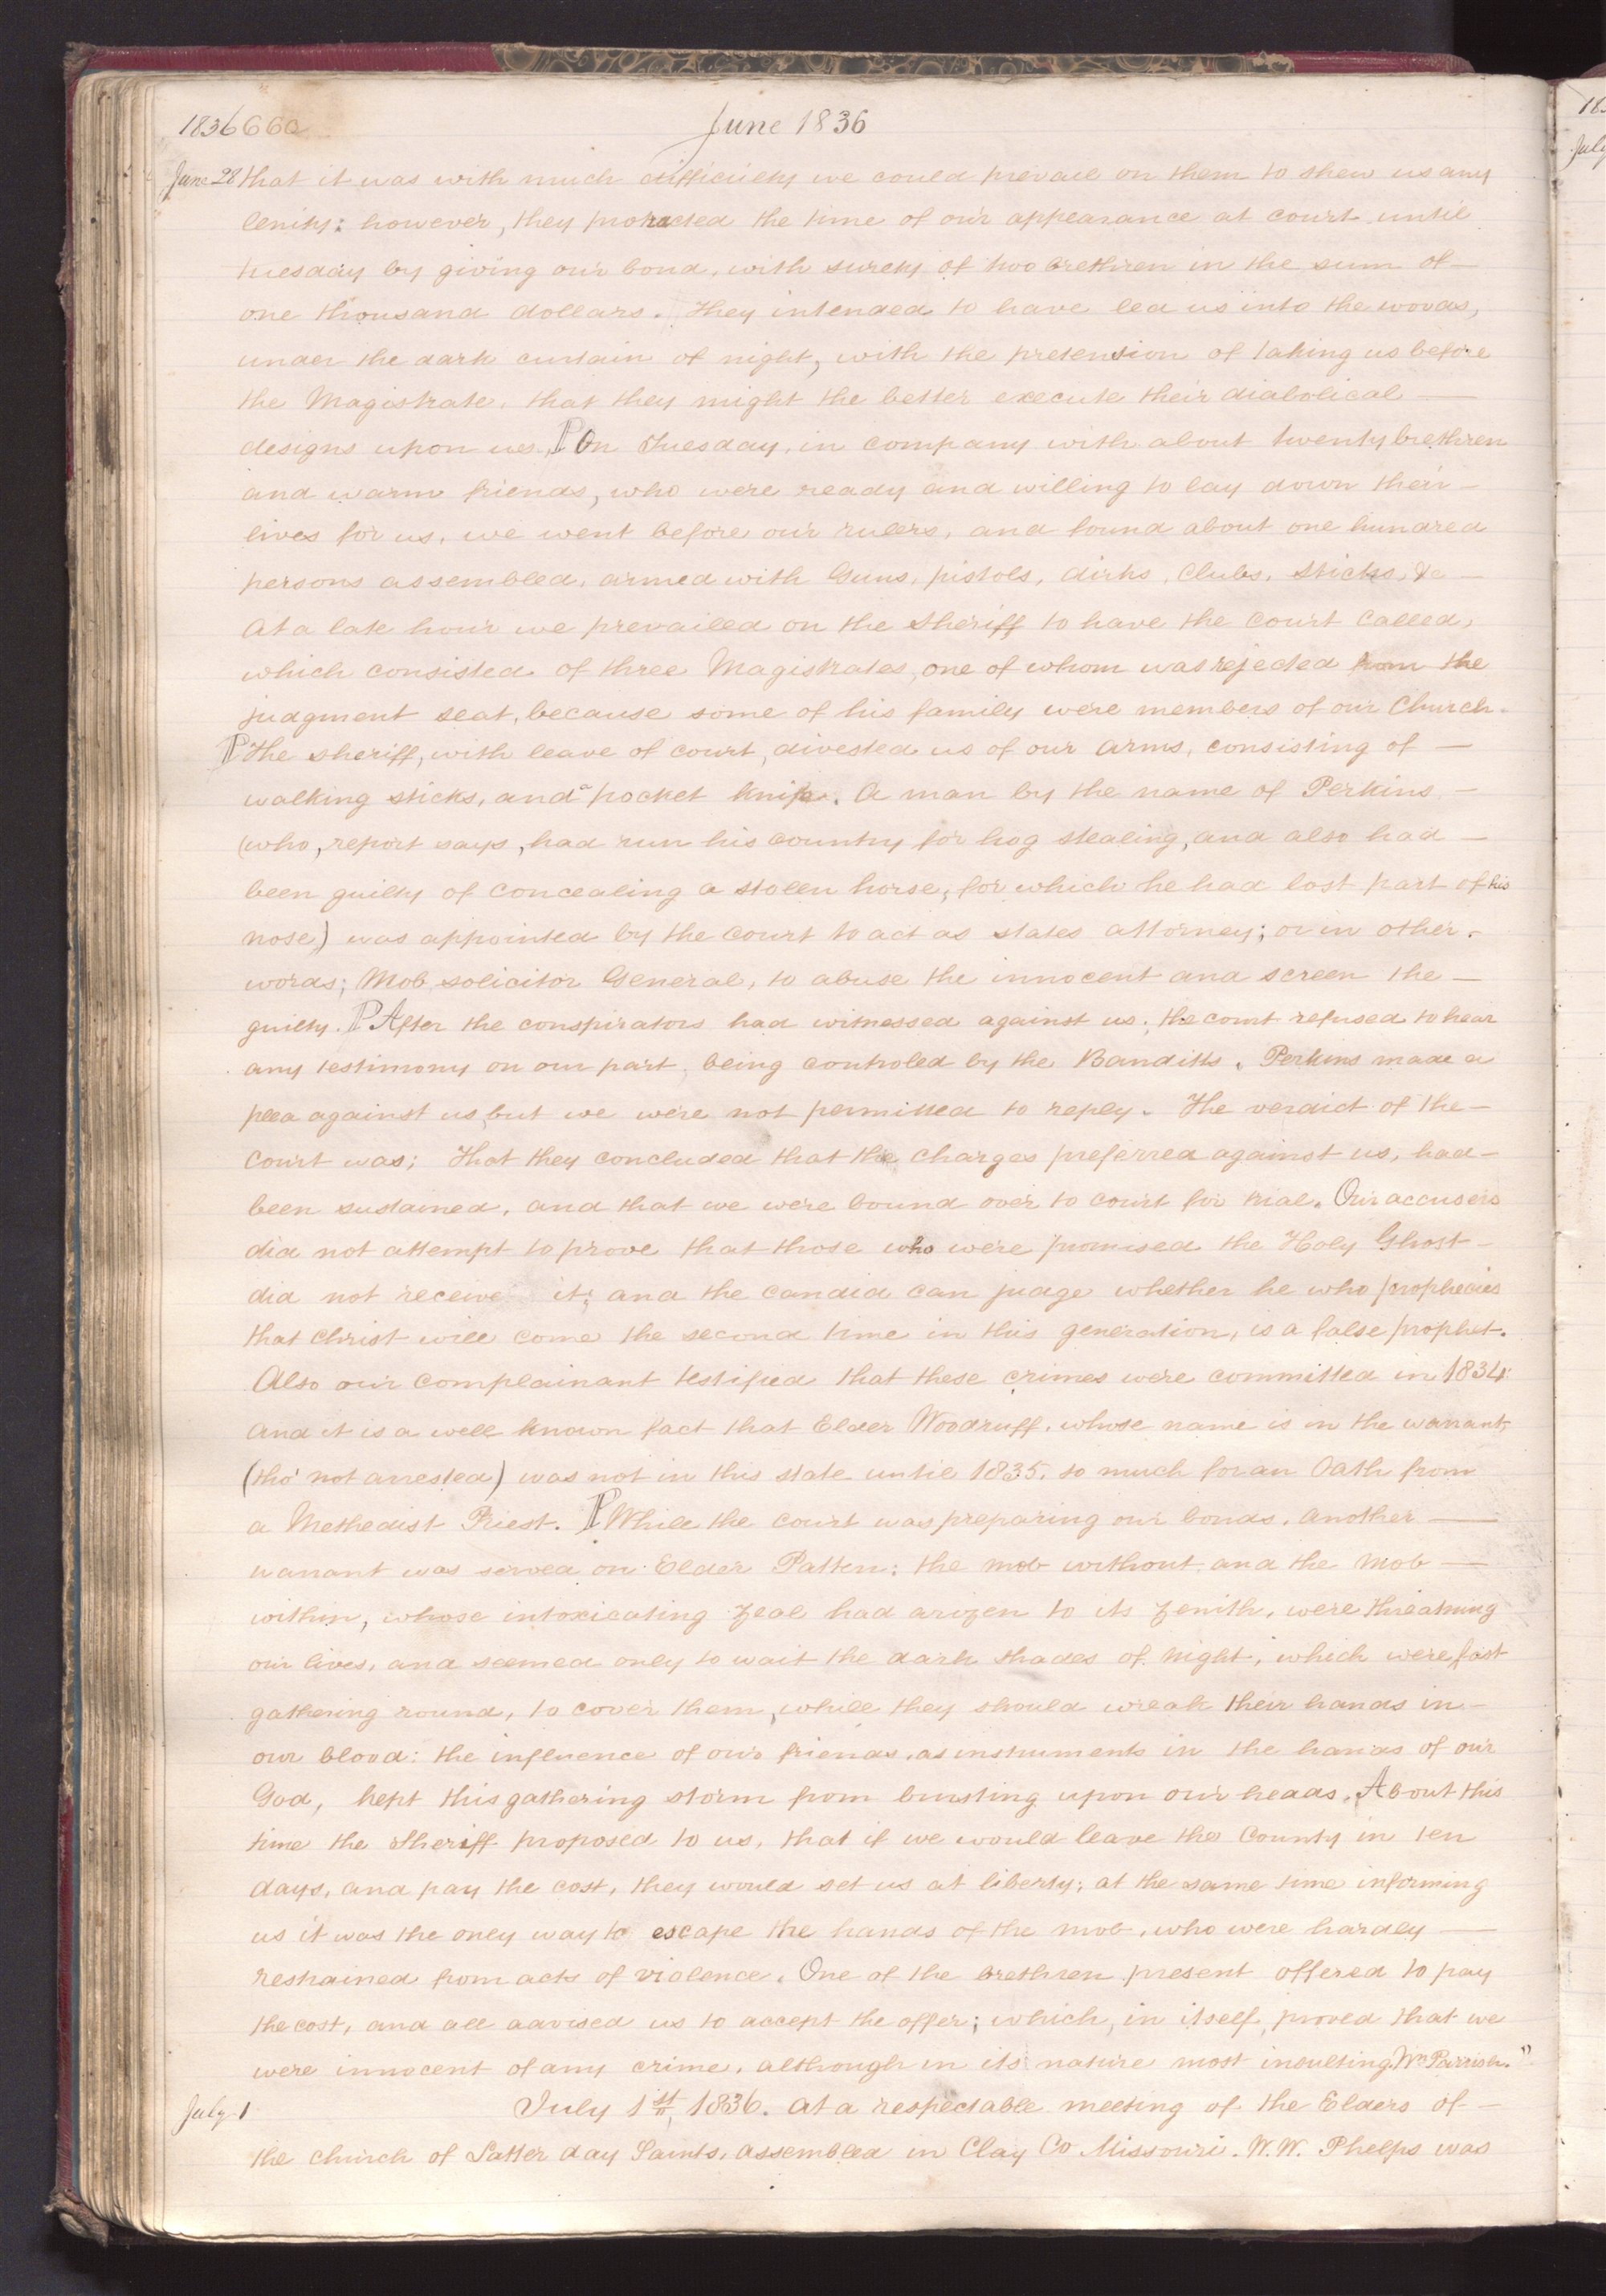 1836 660
June 1836
June 28 that it was with much difficulty we could prevail on them to shew us any
lenity; however, they protracted the time of our appearance at court until
tuesday by giving our bond, with surety of two brethren in the sum of —
one thousand dollars. They intended to have led us into the woods,
under the dark curtain of night, with the pretension of taking us before
the Magistrate, that they might the better execute their diabolical —
designs upon us. ¶ On Tuesday, in company with about twenty brethren
and warm friends, who were ready and willing to lay down their —
lives for us, we went before our rulers, and found about one hundred
persons assembled, armed with Guns, pistols, dirks, Clubs, sticks, &c —
At a late hour we prevailed on the Sheriff to have the Court Called,
which consisted of three Magistrates, one of whom was rejected from the
judgment seat, because some of his family were members of our Church.
¶ The sheriff, with leave of court, divested us of our arms, consisting of —
walking sticks, and a pocket knife. A man by the name of Perkins —
(who, report says, had run his country for hog stealing, and also had —
been guilty of concealing a stolen horse, for which he had lost part of his
nose) was appointed by the Court to act as states attorney; or in other-
words; Mob solicitor General, to abuse the innocent and screen the —
guilty. ¶ After the conspirators had witnessed against us; the court refused to hear
any testimony on our part, being controled by the Banditts. Perkins made a
plea against us, but we were not permitted to reply. The verdict of the —
Court was; That they concluded that the charges preferred against us, had —
been sustained, and that we were bound over to court for trial. Our accusers
did not attempt to prove that those who were promised the Holy Ghost —
did not receive it; and the candid can judge whether he who prophecies
that Christ will come the second time in this generation, is a false prophet.
Also our complainant testified that these crimes were committed in 1834:
And it is a well known fact that Elder Woodruff, whose name is in the warrant,
(tho' not arrested) was not in this state until 1835. so much for an Oath from
a Methedist Priest. ¶ While the Court was preparing our bonds, another —
warrant was served on Elder Patten; the mob without, and the mob —
within, whose intoxicating zeal had arizen to its zenith, were threatning
our lives, and seemed only to wait the dark shades of night, which were fast
gathering round, to cover them, while they should wreak their hands in —
our blood: the influence of our friends, as instruments in the hands of our
God, kept this gathering storm from bursting upon our heads. About this
time the Sheriff proposed to us, that if we would leave the County in ten
days, and pay the cost, they would set us at liberty; at the same time informing
us it was the only way to escape the hands of the mob, who were hardly —
restrained from acts of violence. One of the brethren present offered to pay
the cost, and all advised us to accept the offer; which, in itself, proved that we
were innocent of any crime, although in its nature most insulting. Wn Parrish."
July 1 July 1st, 1836. At a respectable meeting of the Elders of —
the church of Latter day Saints, assembled in Clay Co Missouri. W. W. Phelps was
183
July